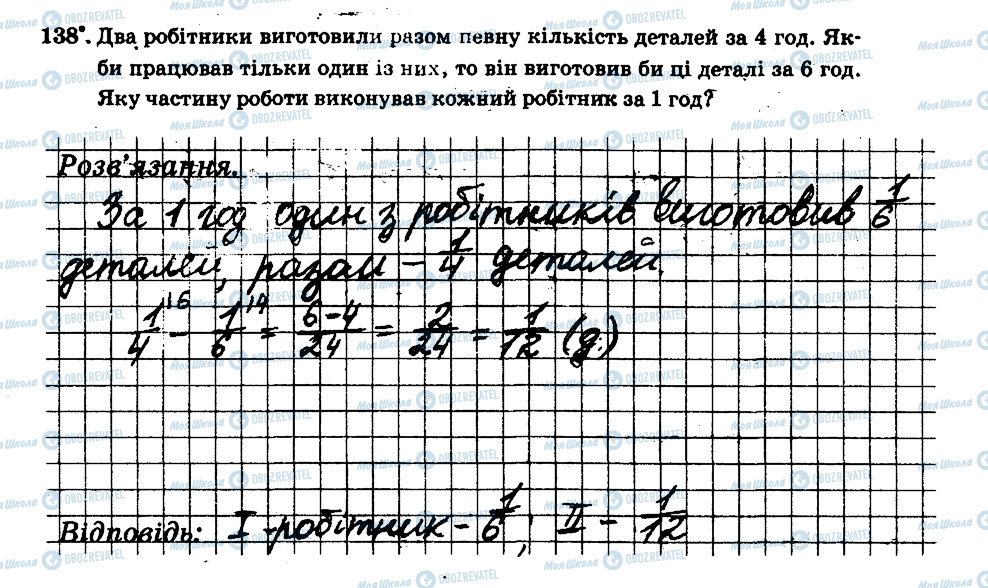 138°. Два робітники виготовили разом певну кількість деталей за 4 год. Як-
би працював тільки один із них, то він виготовив би ці деталі за 6 год.
Яку частину роботи виконував кожний робітник за 1 год?
Розв'язання.
За 1 год один з робітників виготовив 1/6
деталей, разом – 1/4 деталей.
1/4 \6 – 1/6 \4 = 6-4/24 = 2/24 = 1/12 (д.)
Відповідь: I - робітник – 1/6, II – 1/12
МояШкола OBOZREVATEL